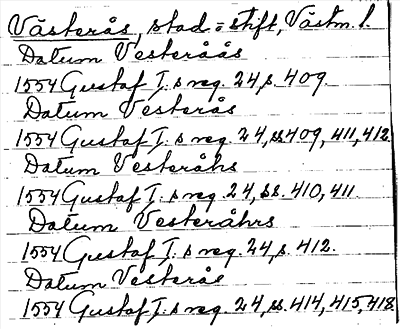 Västerås, stad o stift, Västm. l.
Datum Vesteråås
1554 Gustaf I. s reg. 24, s. 409.
Datum Vesterås
1554 Gustaf I. s reg. 24, ss. 409, 411, 412.
Datum Vesteråhs
1554 Gustaf I. s reg. 24, ss. 410, 411.
Datum Vesteråhrs
1554 Gustaf I. s reg. 24, s. 412.
Datum Vesterås
1554 Gustaf I. s reg. 24, ss. 414, 415, 418